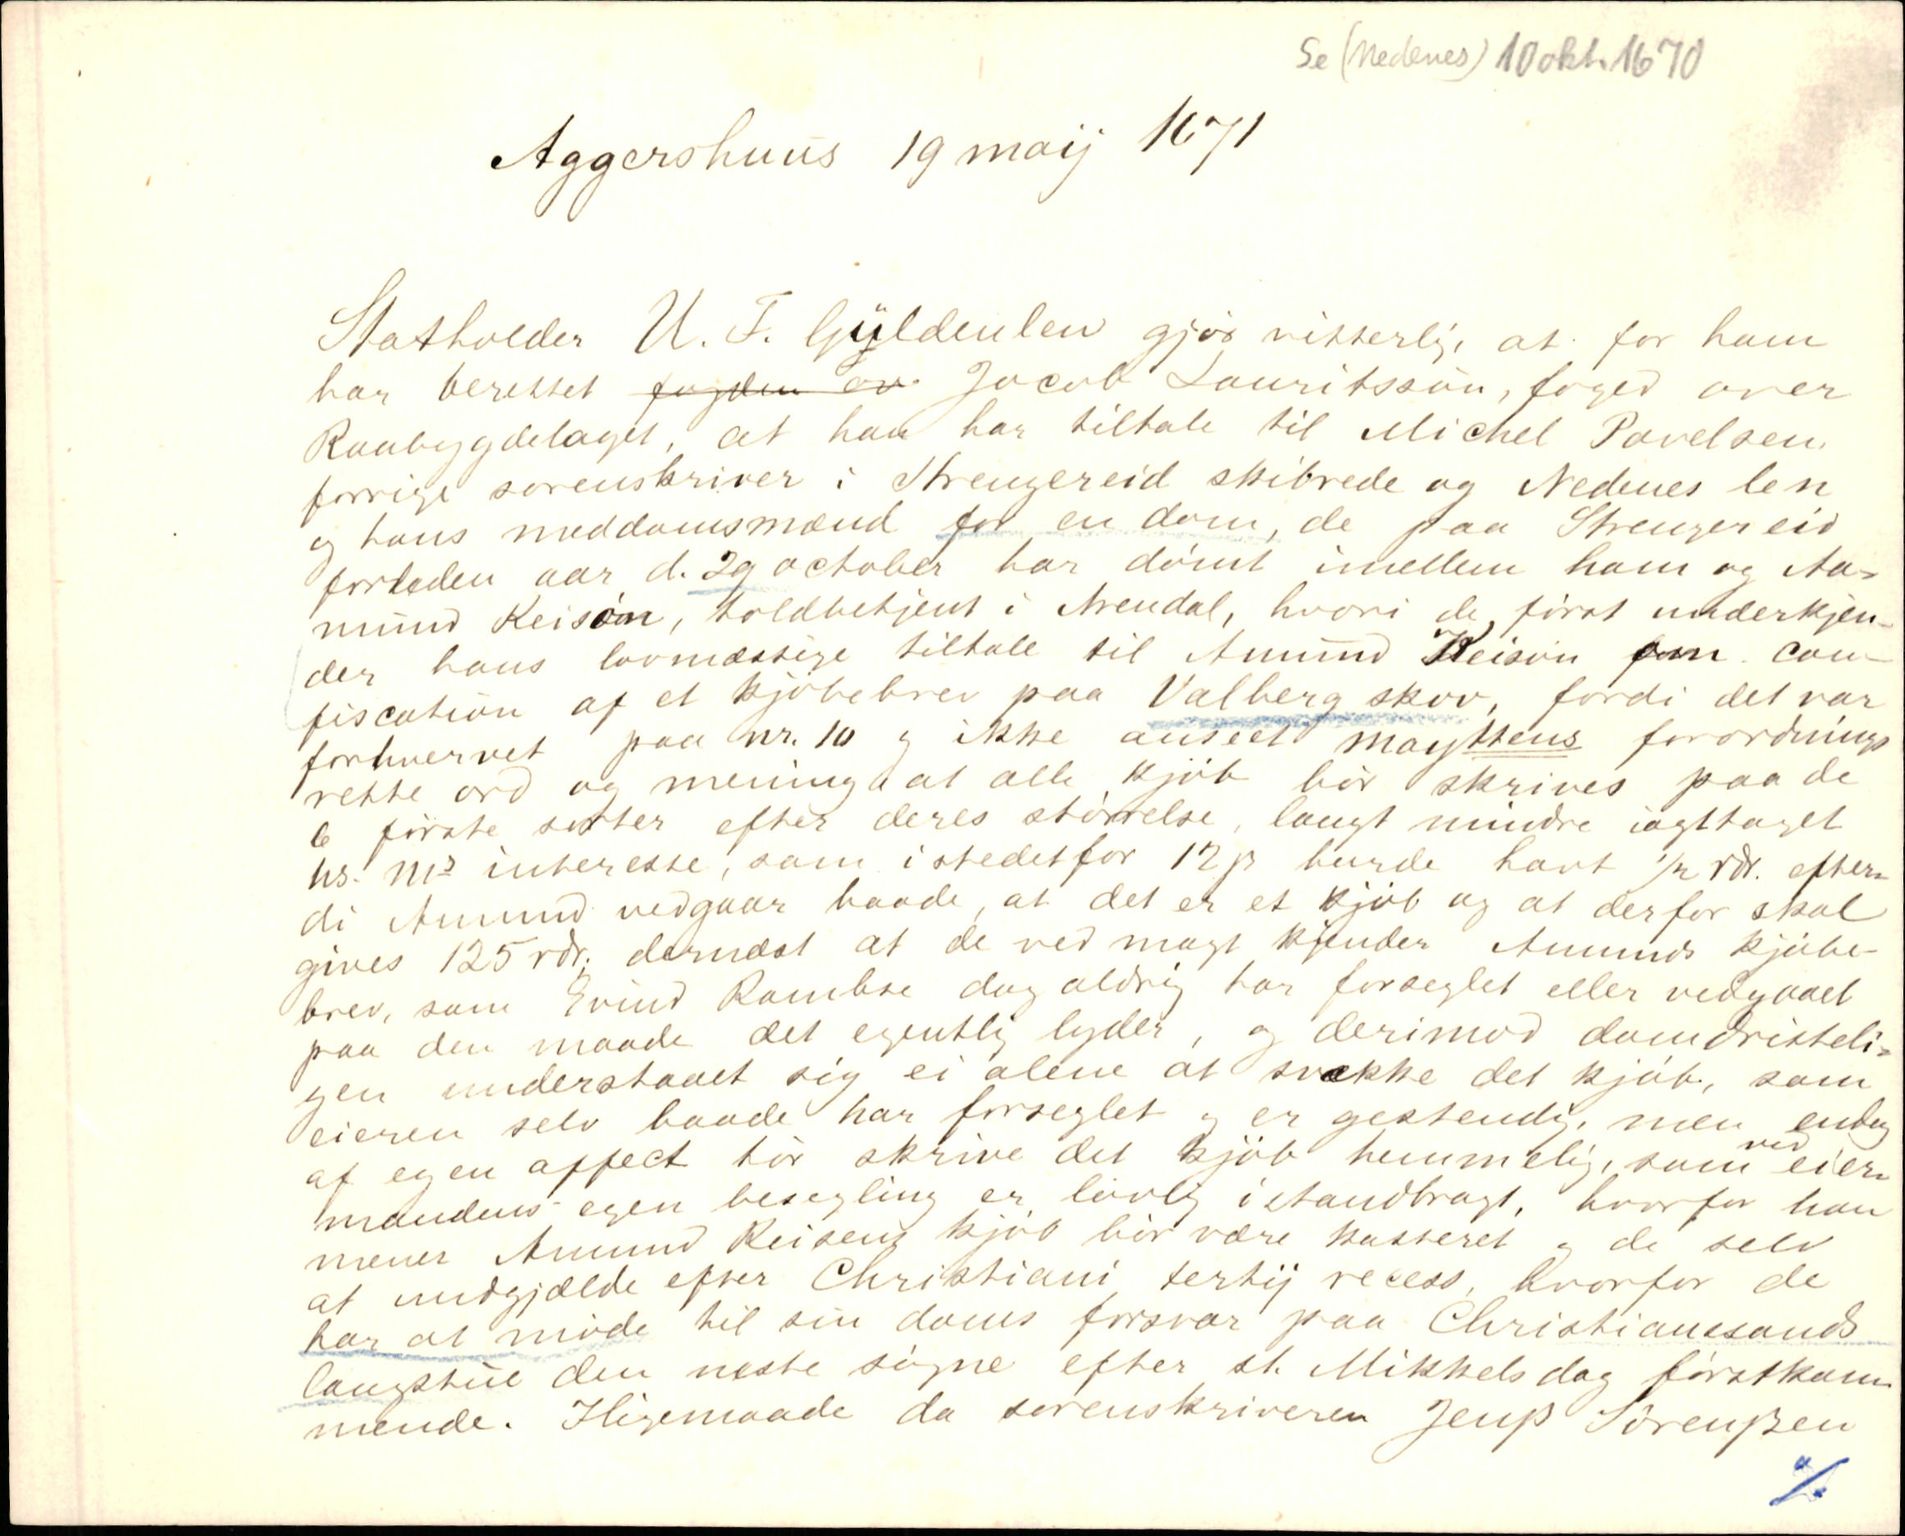 Se (Nedenes) 10 okt. 1670
Aggershuus 19 maij 1671
Statholder U. F. Gÿldenlew gjör vitterlig, at for ham
har berettet fogden ov Jacob Lauritssön, foged over
Raabygdelaget, at han har tiltale til Michel Povelsen
forrige sorenskriver i Strengereid skibrede og Nedenes len
og hans meddomsmænd for en dom, de paa Strengereid
forleden aar d. 29 october har dömt imellem ham og Aa-
mund Keisön, toldbetjent i Arendal, hvori de först underkjen-
der hans lovmæssige tiltale til Amund Keisön om con-
fiscation af et kjöbebrev paa Valberg skov, fordi det var
forhvervet paa nr. 10 og ikke anseet Mayttens forordnings
rette ord og mening at alle kjöb bör skrives paa de
6 förste sorter efter deres störrelse, langt mindre iagttaget
hs. Ms interesse, som istedetfor 12 β burde havt 1/2 rdr. efter-
di Amund vedgaar baade, at det er et kjöb og at derfor skal
gives 125 rdr; dernæst at de ved magt kjender Amunds kjöbe-
brev, som Evind Rambse dog aldrig har forseglet eller vedgaaet
paa den maade det egentlig lyder, og derimod domdristeli-
gen understaaet sig ei alene at svække det kjöb, som
eieren selv baade har forseglet og er gestendig, men endog
af egen affect tör skrive det kjöb hemmelig, som ved eier-
mandens egen besegling er lovlig istandbragt, hvorfor han
mener Amund Keisens kjöb bör være kasseret og de selv
at undgjælde efter Christiani tertij recess, hvorfor de
har at möde til sin doms forsvar paa Christianssands
laugstue den neste sögne efter st. Mikkelsdag förstkom-
mende. Iligemaade da sorenskriveren Jenβ Sörenβen
%